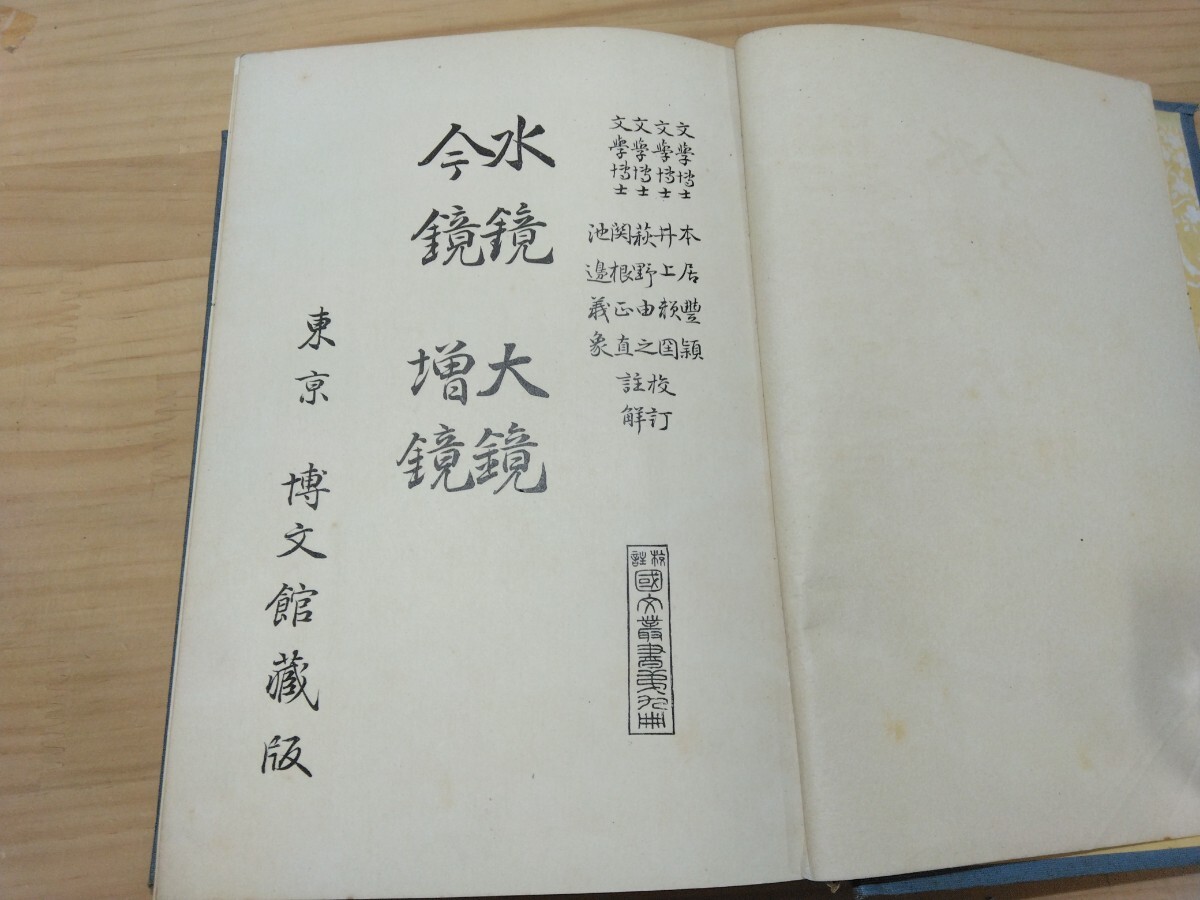 文學博士 本居豐穎
文學博士 井上頼圀 校訂
文學博士 萩野由之
文學博士 関根正直 註解
池邊義象
校註 國文叢書第九冊
水鏡 大鏡
今鏡 増鏡
東京 博文館藏版